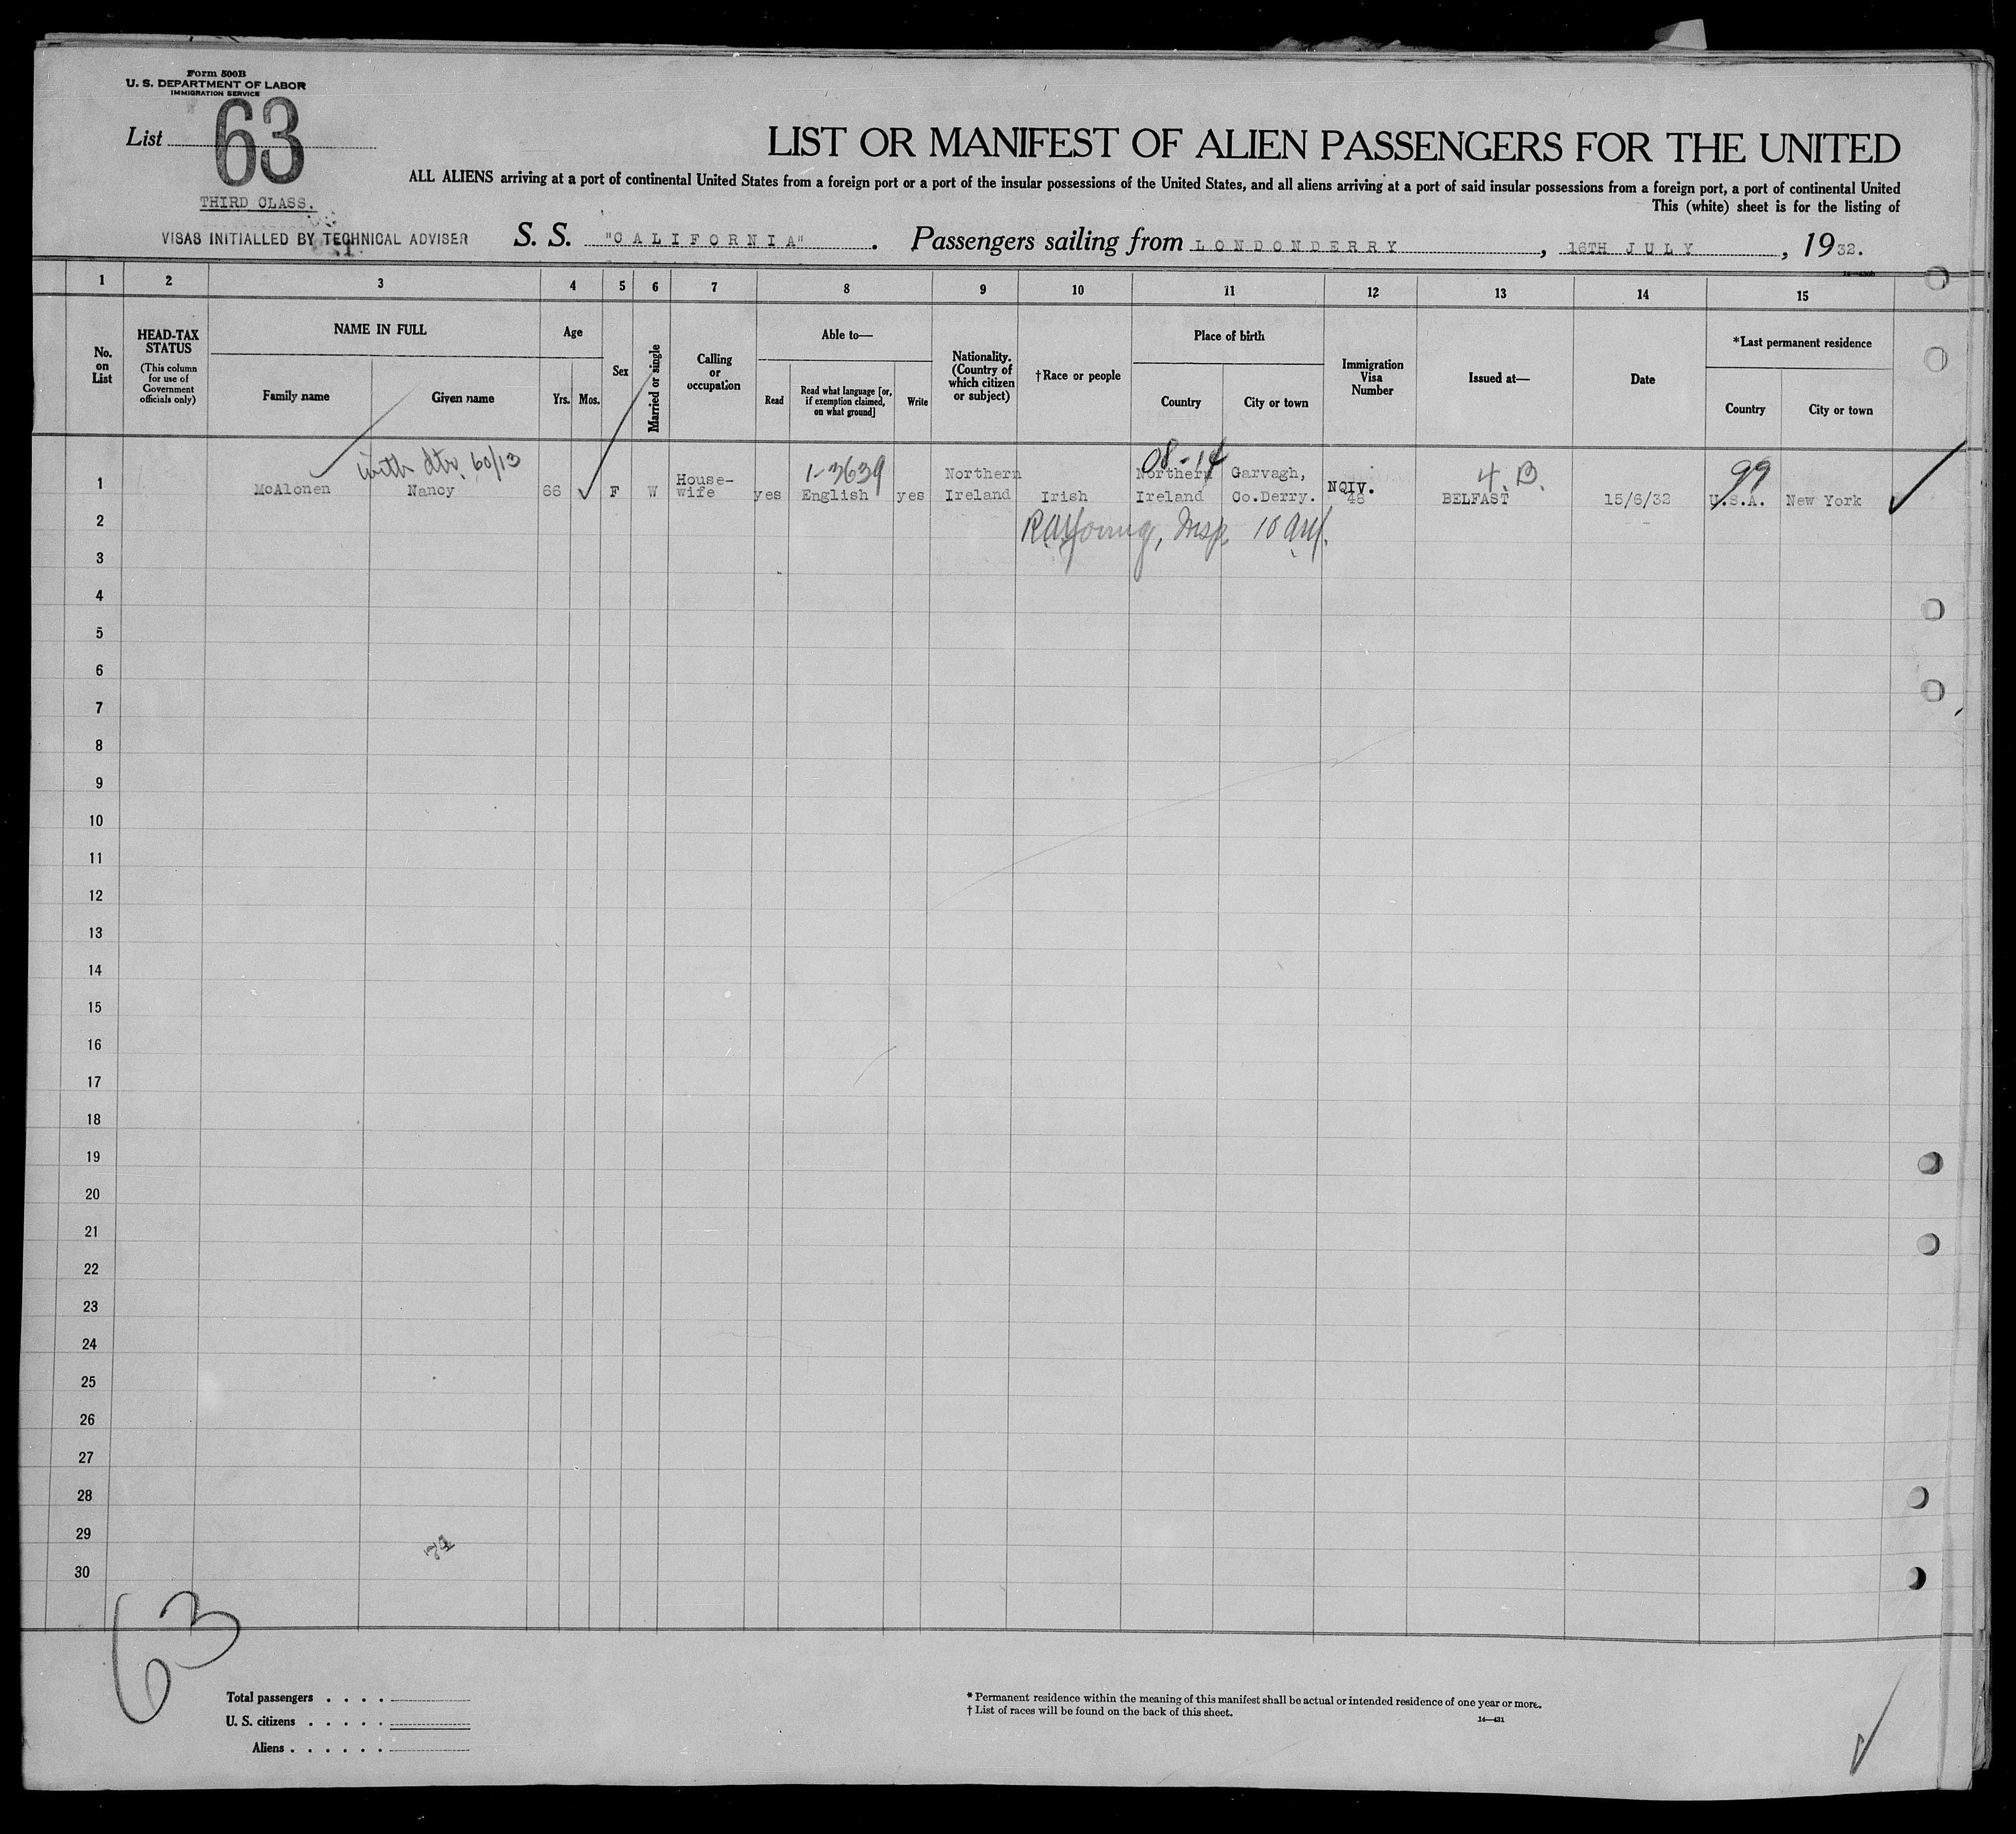 Form 500B
U. S. DEPARTMENT OF LABOR
IMMIGRATION SERVICE
List 63
THIRD CLASS.
VISAS INITIALLED BY TECHNICAL ADVISER
LIST OR MANIFEST OF ALIEN PASSENGERS FOR THE UNITED
ALL ALIENS arriving at a port of continental United States from a foreign port or a port of the insular possessions of the United States, and all aliens arriving at a port of said insular possessions from a foreign port, a port of continental United
This (white) sheet is for the listing of
S. S. "CALIFORNIA". Passengers sailing from LONDONDERRY, 16TH JULY, 1932.
1 2 3 4 5 6 7 8 9 10 11 12 13 14 15
No. on List
HEAD-TAX STATUS
(This column for use of Government officials only)
NAME IN FULL
Family name
Given name
Age
Yrs.
Mos.
Sex
Married or single
Calling or occupation
Able to—
Read
Read what language [or, if exemption claimed, on what ground]
Write
Nationality. (Country of which citizen or subject)
†Race or people
Place of birth
Country
City or town
Immigration Visa Number
Issued at—
Date
*Last permanent residence
Country
City or town
with dtr. 60/13
1-3639
08-14
4.B.
99
1 McAlonen Nancy 66 F W House-wife yes English yes Northern Ireland Irish Northern Ireland Garvagh, Co.Derry. NQIV. 48 BELFAST 15/6/32 U.S.A. New York
2
RAYoung, Insp.
3
4
5
6
7
8
9
10
11
12
13
14
15
16
17
18
19
20
21
22
23
24
25
26
27
28
29
30
63
Total passengers . . . .
U. S. citizens . . . . .
Aliens . . . . . .
* Permanent residence within the meaning of this manifest shall be actual or intended residence of one year or more.
† List of races will be found on the back of this sheet.
14—431